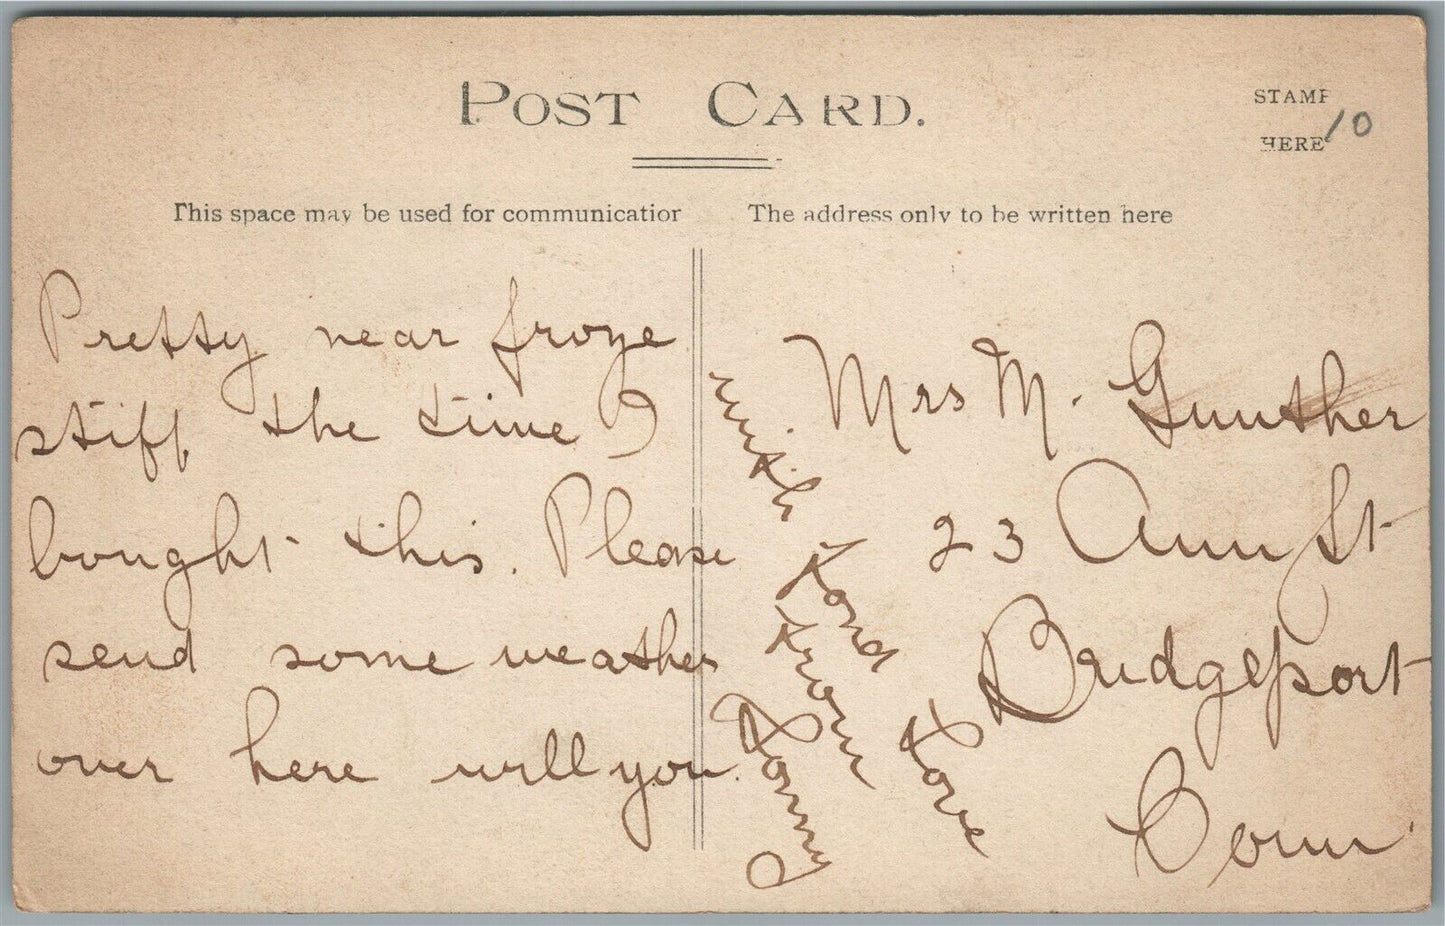 POST CARD.
STAMP
HERE
10
This space may be used for communication
The address only to be written here
Pretty near froze
stiff the time I
bought this. Please
send some weather
over here will you.
with
fond
Love
from
Fanny
Mrs M. Gunther
23 Ann St
Bridgeport
Conn